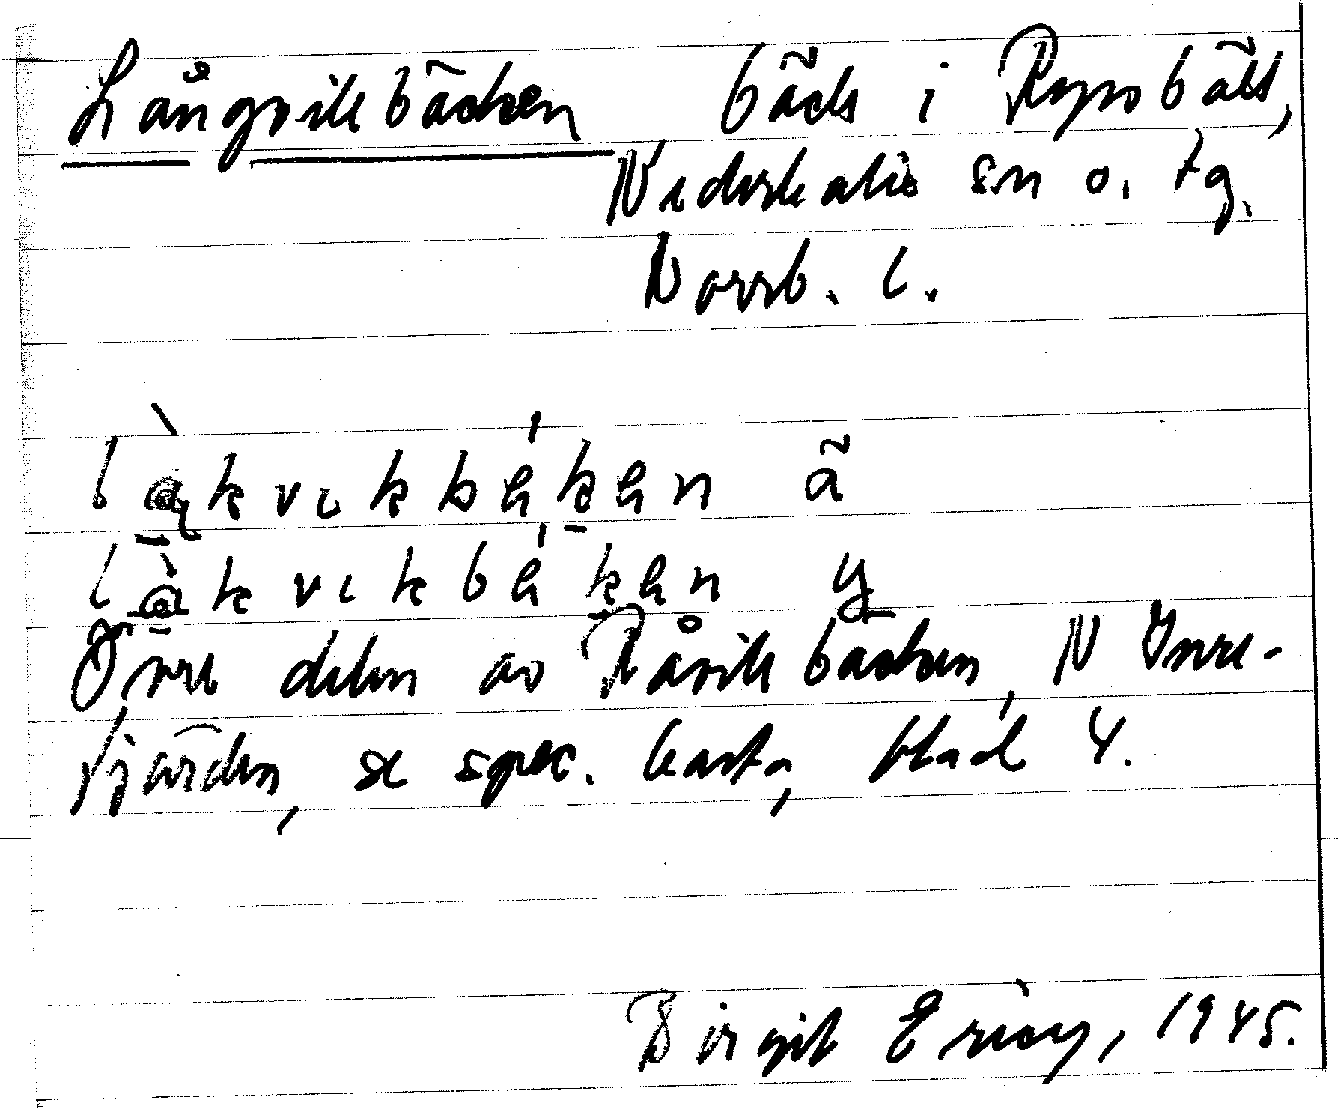 Långvikbäcken bäck i Rysbält,
Nederkalix sn o. tg.
Norrb. l.
ä
y
Övre delen av Råvikbäcken, N Inre-
fjärden, se spec. karta, blad 4.
Birgit Ericy, 1945.